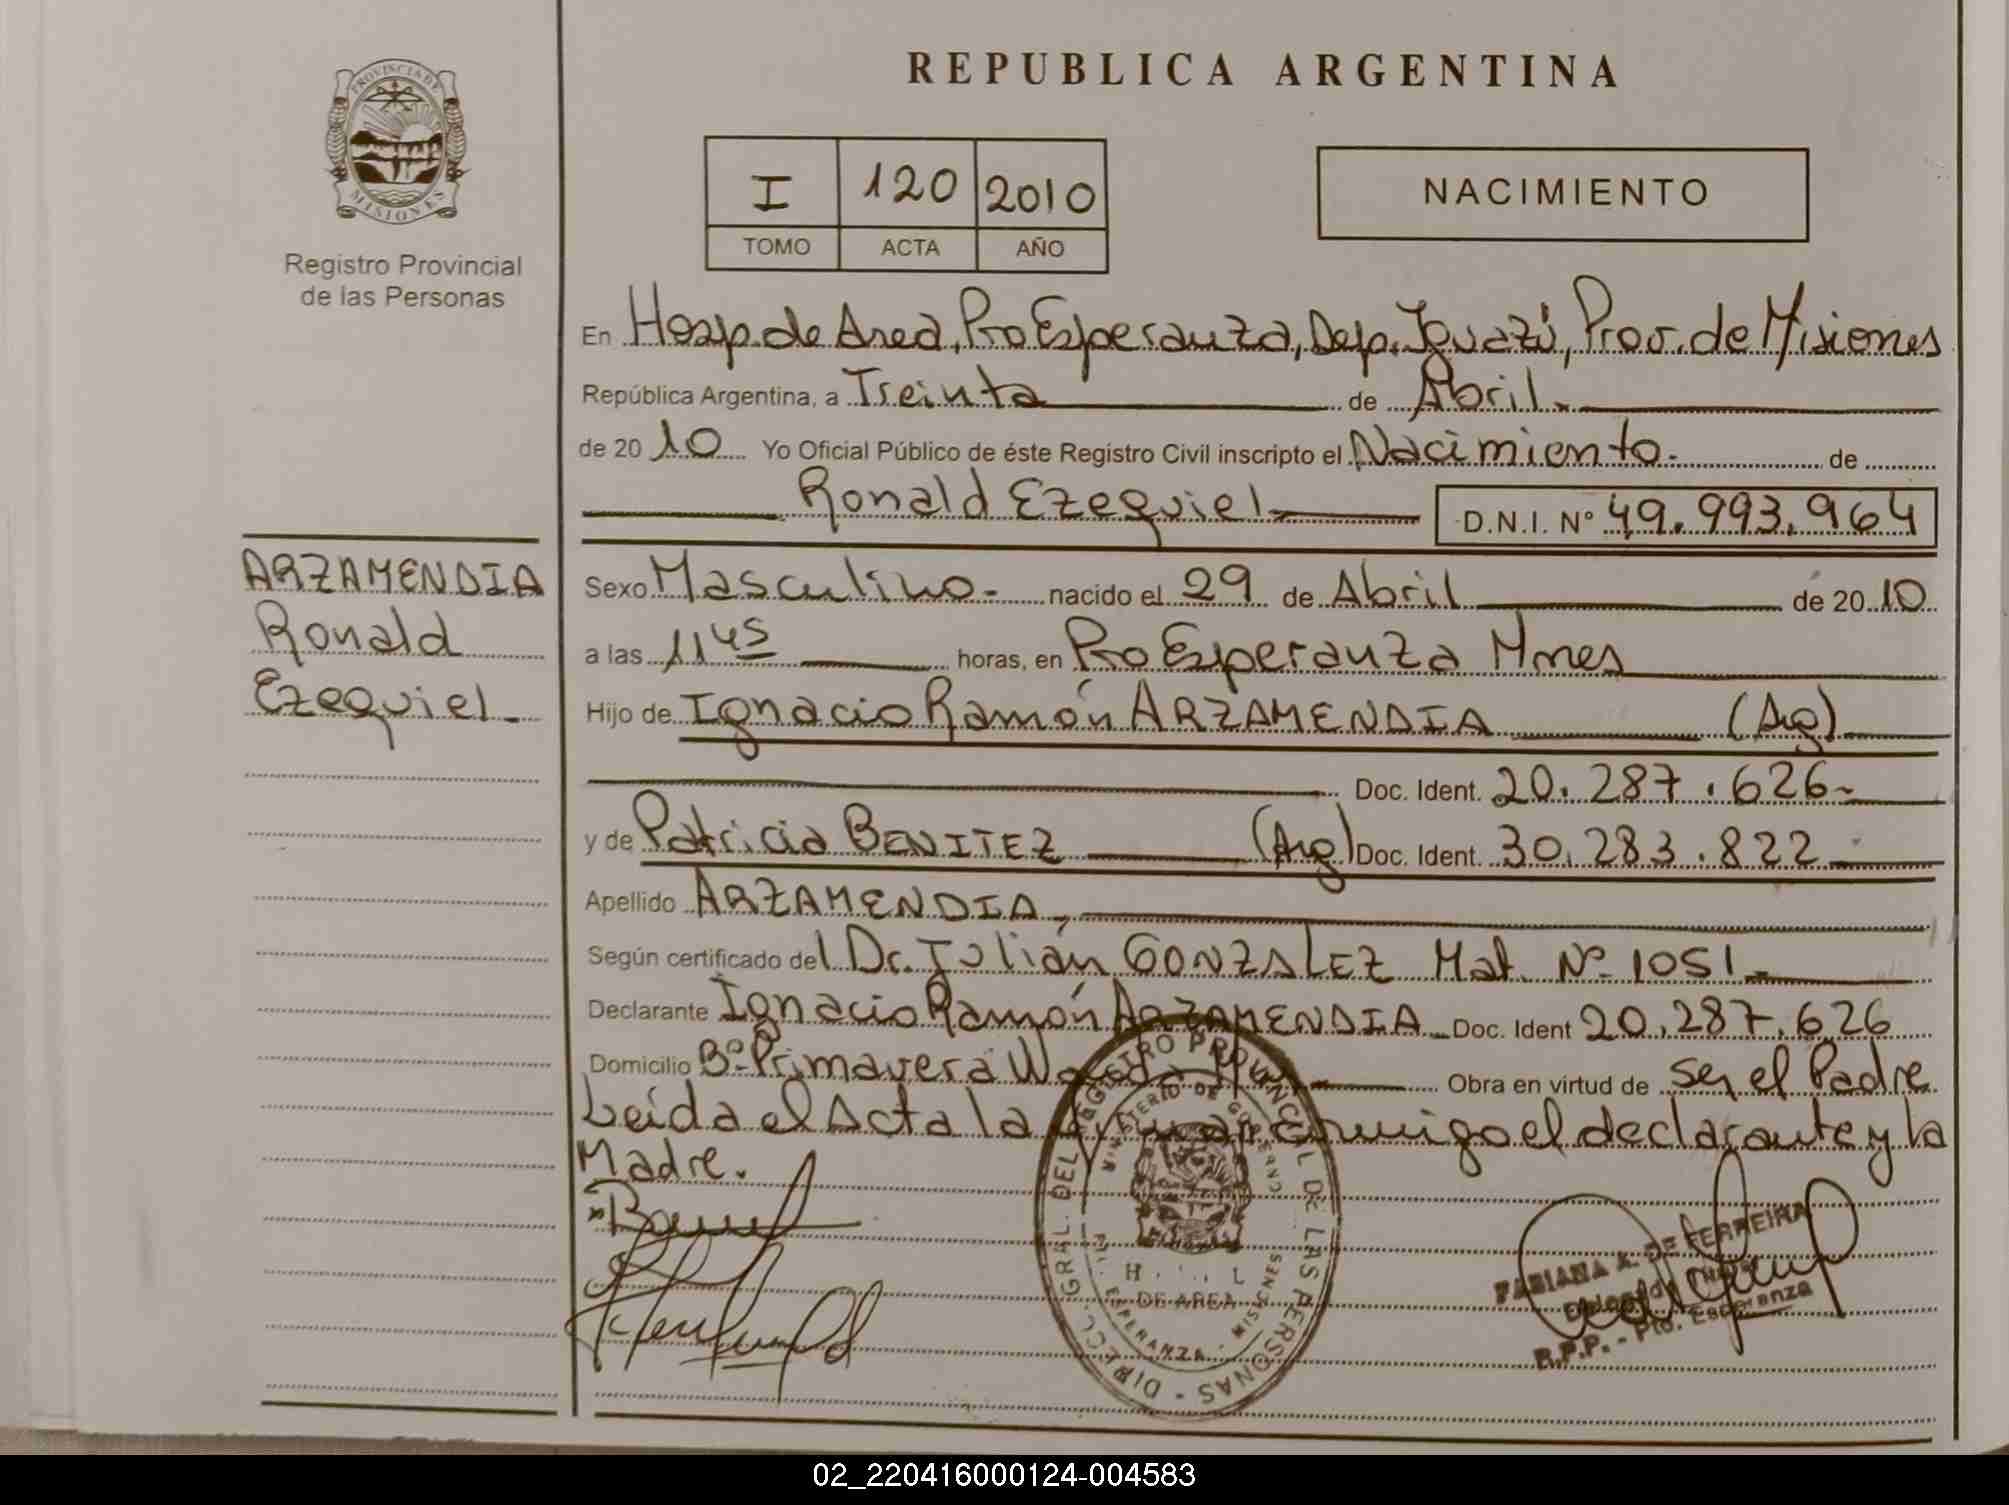 PROVINCIA DE
MISIONES
Registro Provincial
de las Personas
ARZAMENDIA
Ronald
Ezequiel.
REPUBLICA ARGENTINA
I 120 2010
TOMO ACTA AÑO
NACIMIENTO
En Hosp. de Area, Pto Esperanza, Dep. Iguazú, Prov. de Misiones
República Argentina, a Treinta de Abril.
de 2010 Yo Oficial Público de éste Registro Civil inscripto el Nacimiento. de
Ronald Ezequiel D.N.I. Nº 49.993.964
Sexo Masculino. nacido el 29 de Abril de 2010
a las 11 45 horas, en Pto Esperanza Mnes
Hijo de Ignacio Ramón ARZAMENDIA (Arg)
Doc. Ident. 20.287.626
y de Patricia BENITEZ (Arg) Doc. Ident. 30.283.822
Apellido ARZAMENDIA,
Según certificado del Dr. Julián GONZALEZ Mat. Nº 1051
Declarante Ignacio Ramón ARZAMENDIA Doc. Ident 20.287.626
Domicilio Bº Primavera Obra en virtud de ser el Padre
Leída el Acta la conmigo el declarante y la
Madre.
DIRECC. GRAL. DEL REGISTRO PROVINCIAL DE LAS PERSONAS
MINISTERIO DE GOBIERNO
DE AREA
ESPERANZA - MISIONES
FABIANA A. DE FERREIRA
R.P.P. - Pto. Esperanza
02_220416000124-004583